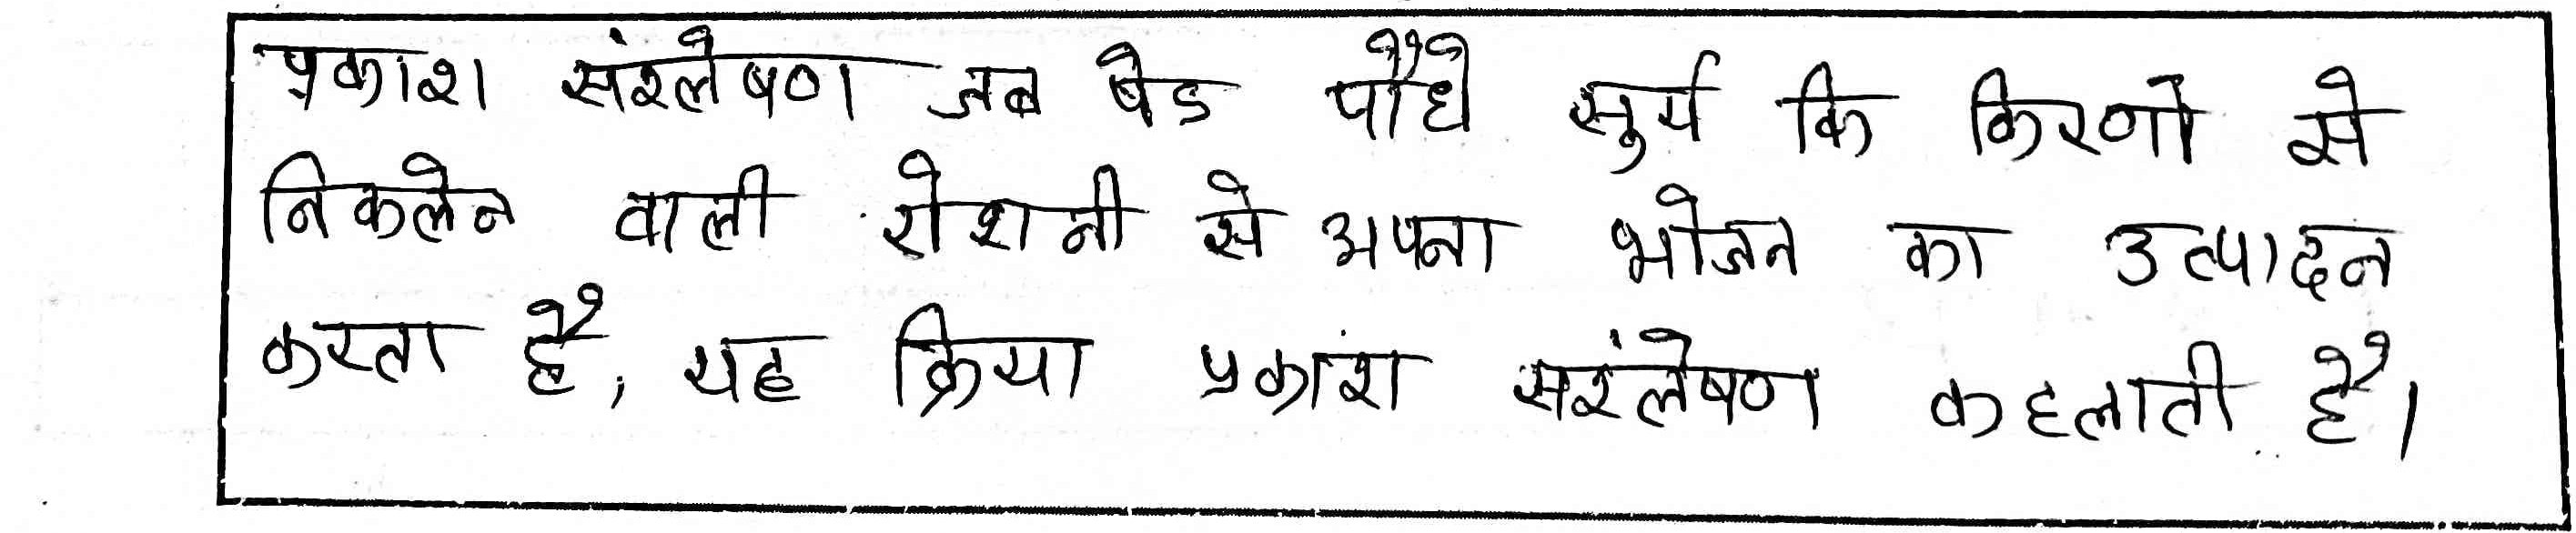 प्रकाश संश्लेषण जब पेड पौधे सुर्य कि किरणो से
निकलेन वाली रोशनी से अपना भोजन का उत्पादन
करता है, यह क्रिया प्रकांश संश्लेषण कहलाती है।